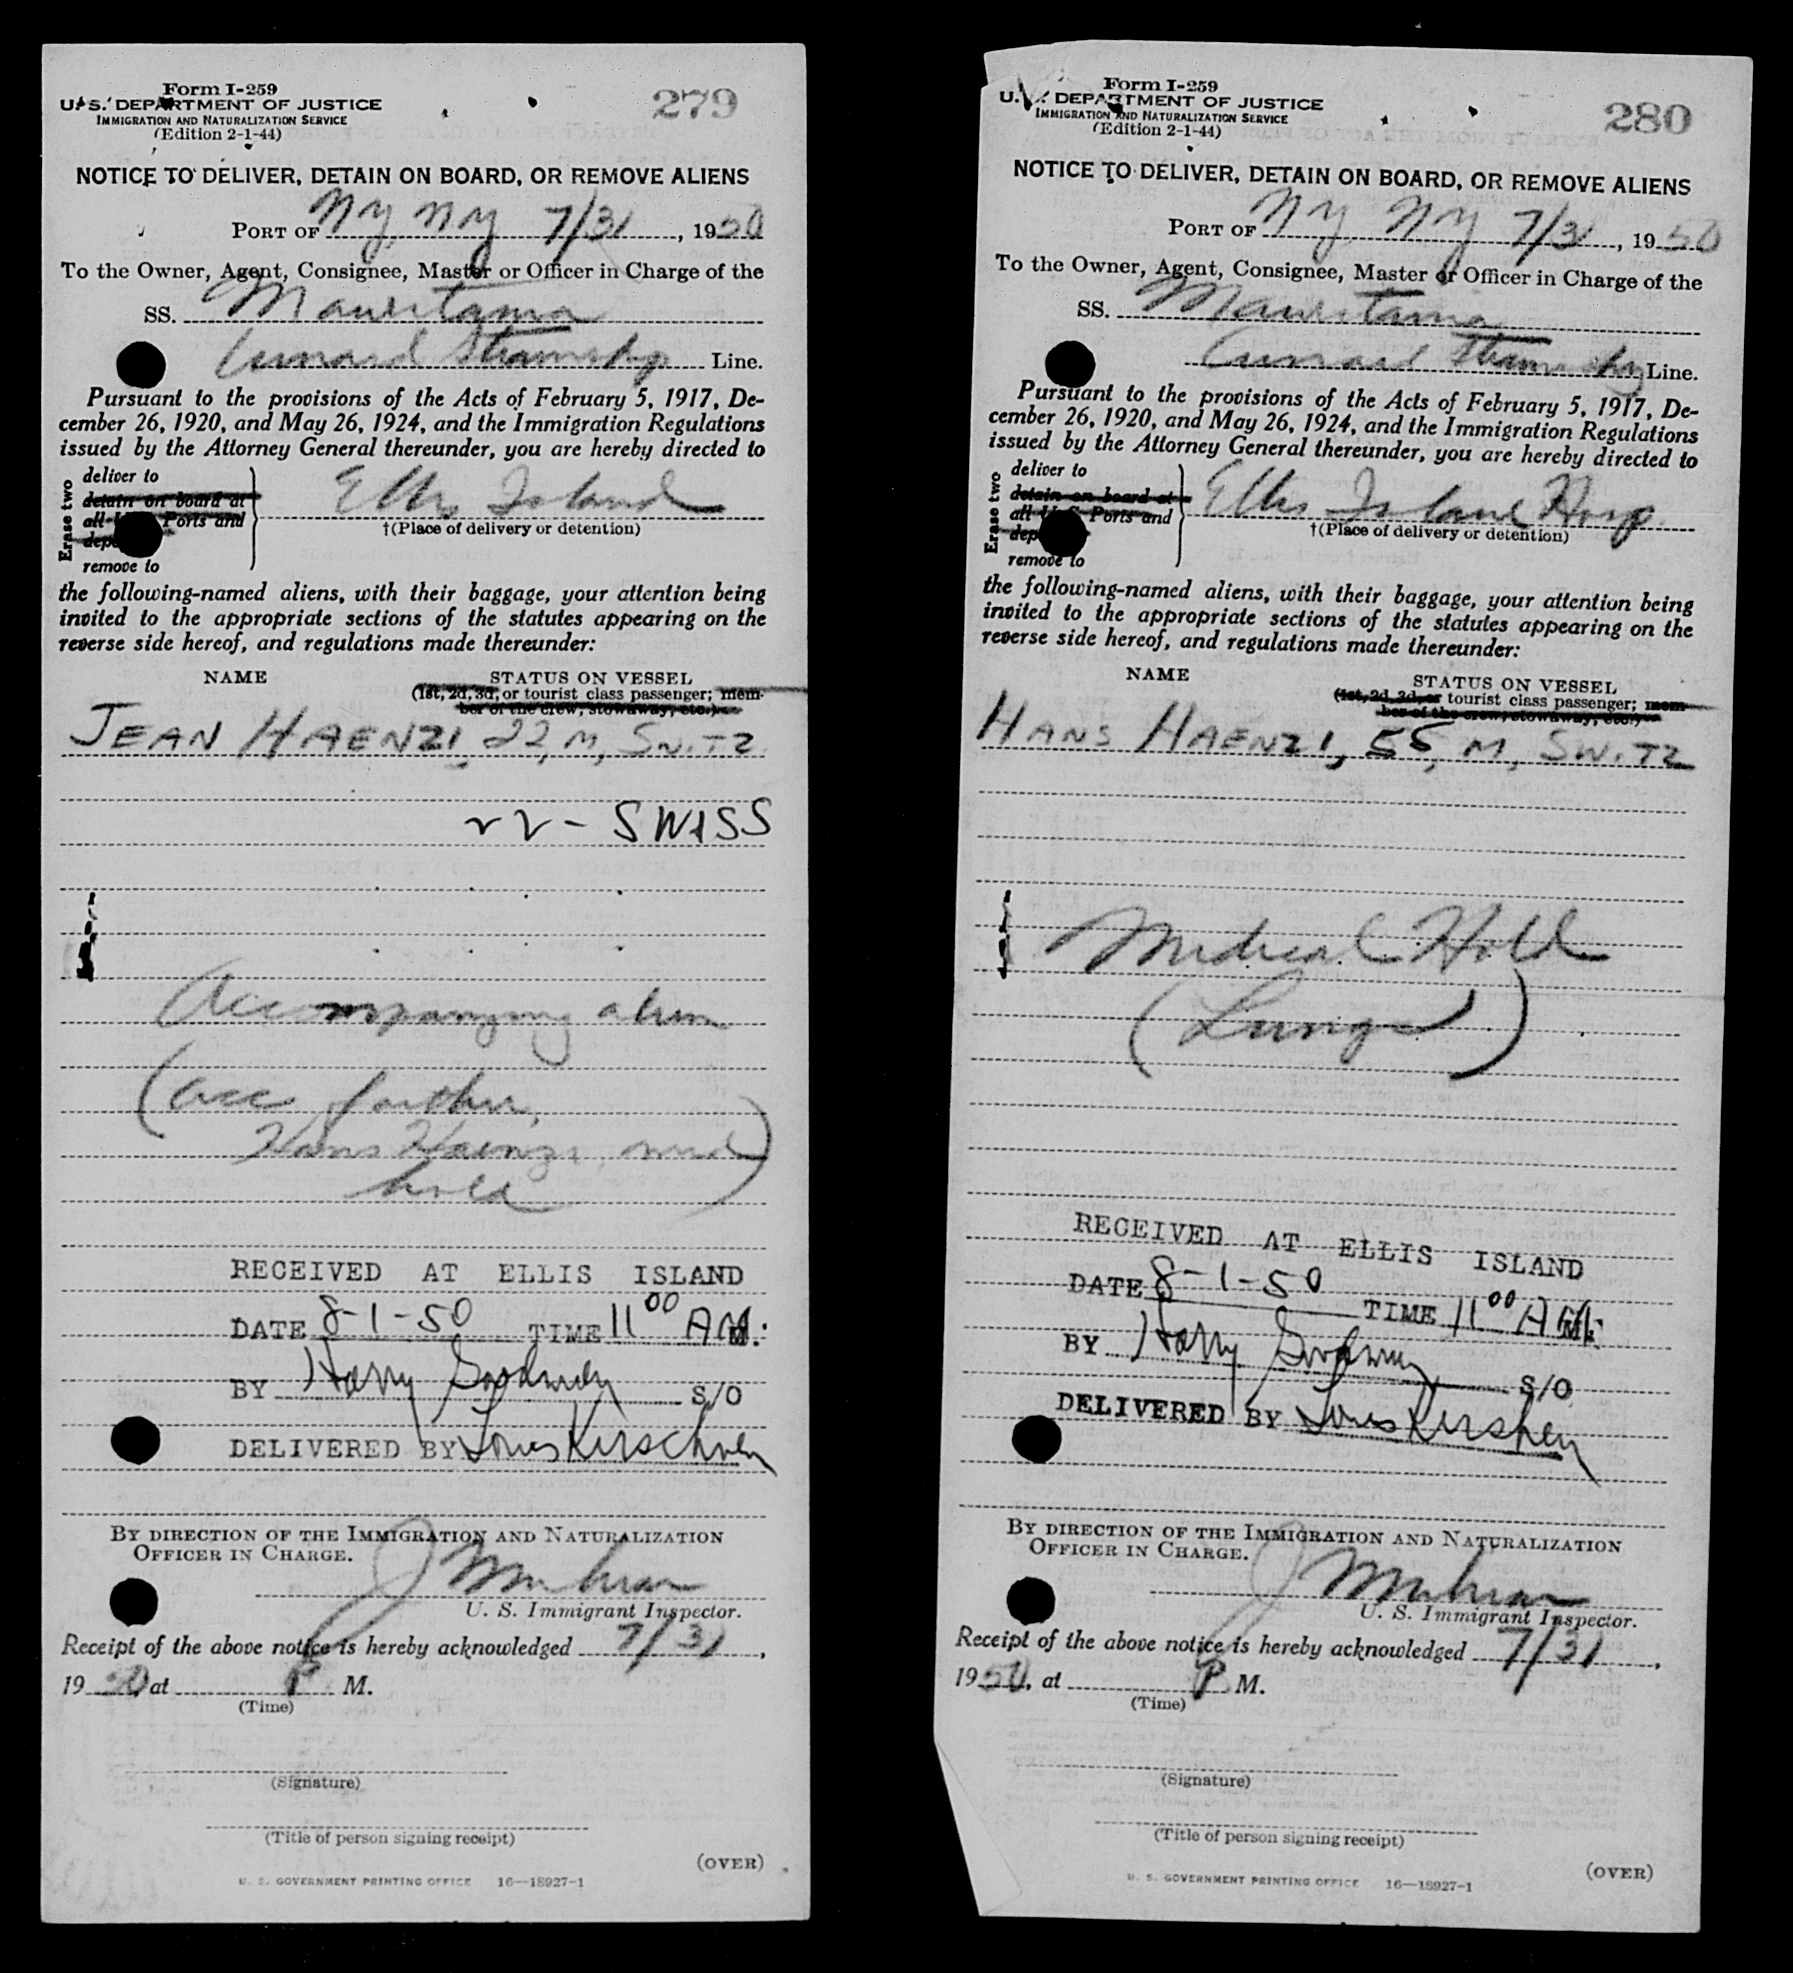 Form I-259
U. S. DEPARTMENT OF JUSTICE
IMMIGRATION AND NATURALIZATION SERVICE
(Edition 2-1-44)
279
NOTICE TO DELIVER, DETAIN ON BOARD, OR REMOVE ALIENS
PORT OF NY, NY 7/31, 1950
To the Owner, Agent, Consignee, Master or Officer in Charge of the
SS. Mauretania
Cunard Steamship Line.
Pursuant to the provisions of the Acts of February 5, 1917, De-
cember 26, 1920, and May 26, 1924, and the Immigration Regulations
issued by the Attorney General thereunder, you are hereby directed to
Erase two
deliver to
detain on board at
all Ports and
remove to
Ellis Island
†(Place of delivery or detention)
the following-named aliens, with their baggage, your attention being
invited to the appropriate sections of the statutes appearing on the
reverse side hereof, and regulations made thereunder:
NAME
STATUS ON VESSEL
(1st, 2d, 3d, or tourist class passenger; mem-
ber of the crew, stowaway, etc.)
JEAN HAENZI, 22, M, SWITZ
22 - SWISS
Accompanying alien
(acc father,
Hans Haenzi, med
hold)
RECEIVED AT ELLIS ISLAND
DATE 8-1-50 TIME 11 00 AM.
BY Harry S/O
DELIVERED BY Louis Kirschner
BY DIRECTION OF THE IMMIGRATION AND NATURALIZATION
OFFICER IN CHARGE.
U. S. Immigrant Inspector.
Receipt of the above notice is hereby acknowledged 7/31,
1950, at P. M.
(Time)
(Signature)
(Title of person signing receipt)
(OVER)
U. S. GOVERNMENT PRINTING OFFICE 16—18927-1
Form I-259
U. S. DEPARTMENT OF JUSTICE
IMMIGRATION AND NATURALIZATION SERVICE
(Edition 2-1-44)
280
NOTICE TO DELIVER, DETAIN ON BOARD, OR REMOVE ALIENS
PORT OF NY, NY 7/31, 1950
To the Owner, Agent, Consignee, Master or Officer in Charge of the
SS. Mauretania
Cunard Steamship Line.
Pursuant to the provisions of the Acts of February 5, 1917, De-
cember 26, 1920, and May 26, 1924, and the Immigration Regulations
issued by the Attorney General thereunder, you are hereby directed to
Erase two
deliver to
detain on board at
all U. S. Ports and
remove to
Ellis Island Hosp.
†(Place of delivery or detention)
the following-named aliens, with their baggage, your attention being
invited to the appropriate sections of the statutes appearing on the
reverse side hereof, and regulations made thereunder:
NAME
STATUS ON VESSEL
(1st, 2d, 3d, or tourist class passenger; mem-
ber of the crew, stowaway, etc.)
HANS HAENZI, 55, M, SWITZ
Medical Hold
(Lungs)
RECEIVED AT ELLIS ISLAND
DATE 8-1-50 TIME 11 00 AM.
BY Harry S/O
DELIVERED BY Louis
BY DIRECTION OF THE IMMIGRATION AND NATURALIZATION
OFFICER IN CHARGE.
U. S. Immigrant Inspector.
Receipt of the above notice is hereby acknowledged 7/31,
1950, at P. M.
(Time)
(Signature)
(Title of person signing receipt)
(OVER)
U. S. GOVERNMENT PRINTING OFFICE 16—18927-1